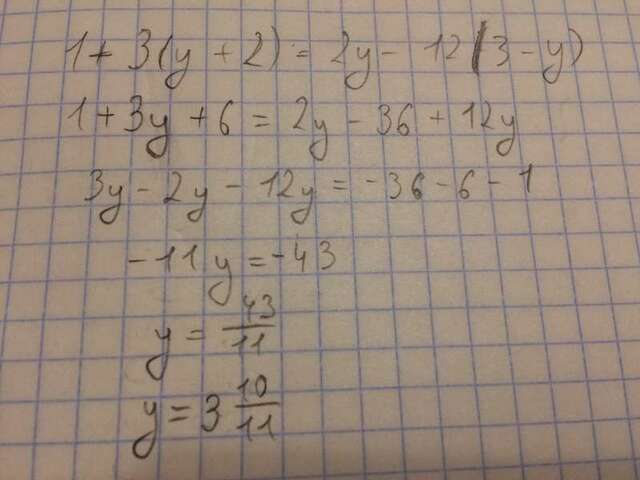 1 + 3(y + 2) = 2y - 12(3 - y)
1 + 3y + 6 = 2y - 36 + 12y
3y - 2y - 12y = - 36 - 6 - 1
- 11y = - 43
y = 43/11
y = 3 10/11